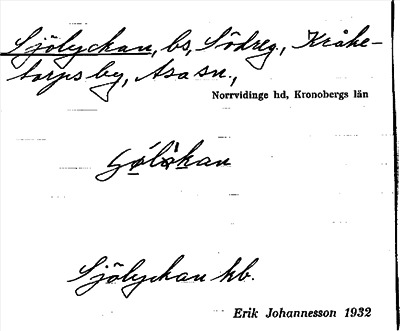 Sjölyckan, bs, Södreg., Kråke-
torps by, Asa sn.,
Norrvidinge hd, Kronobergs län
Sjölyckan hb.
Erik Johannesson 1932